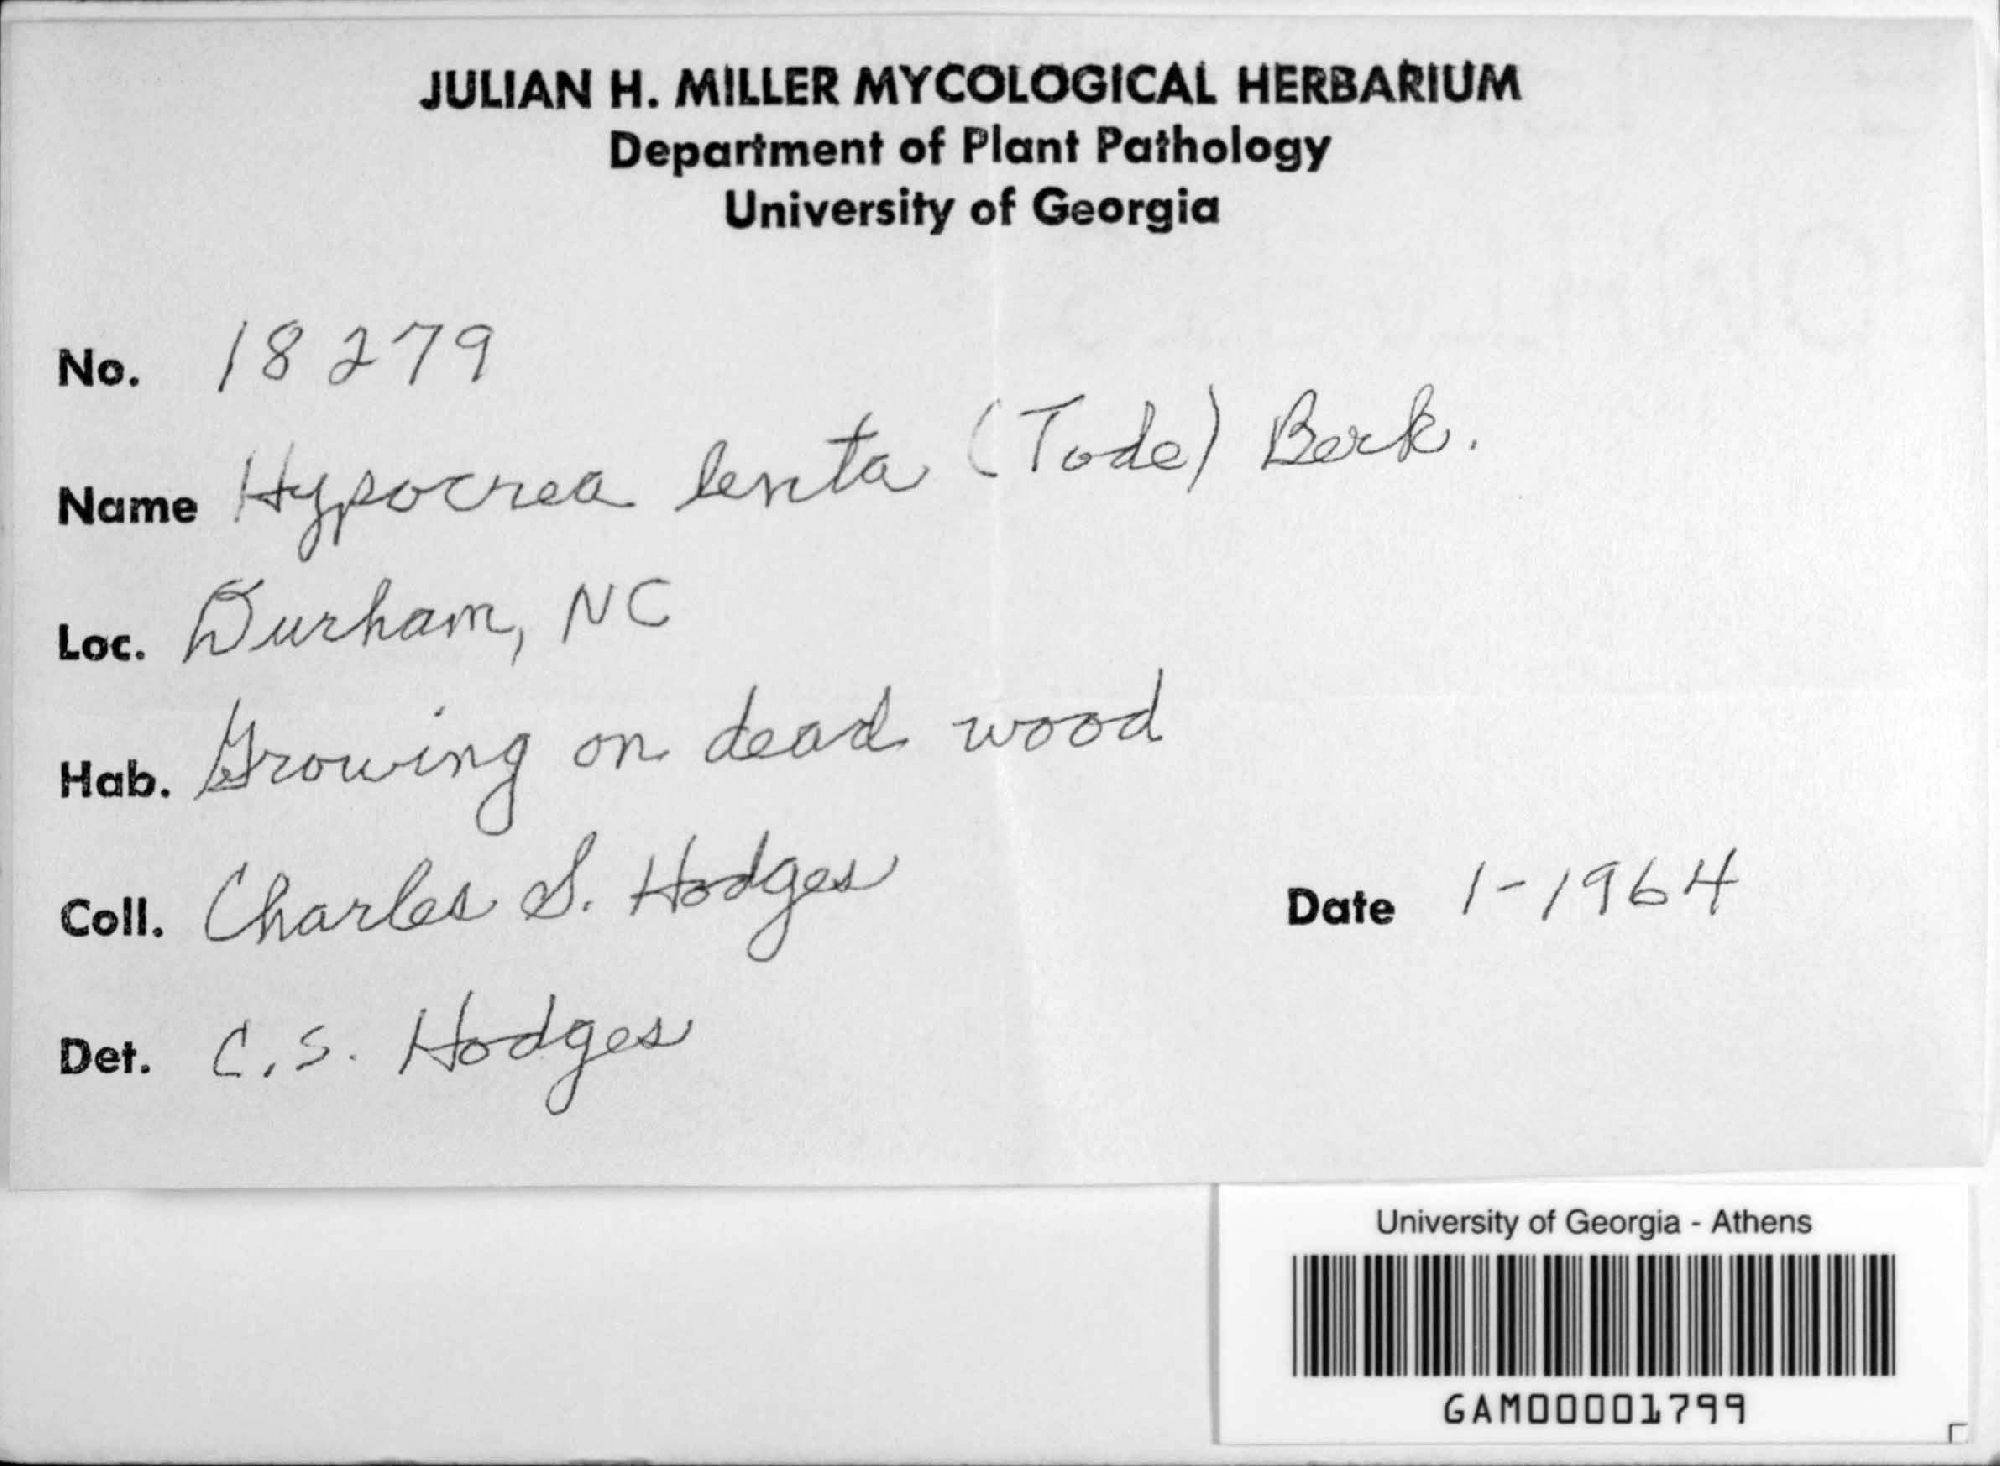 JULIAN H. MILLER MYCOLOGICAL HERBARIUM
Department of Plant Pathology
University of Georgia
No. 18279
Name Hypocrea lenta (Tode) Berk.
Loc. Durham, NC
Hab. Growing on dead wood
Coll. Charles S. Hodges Date 1-1964
Det. C.S. Hodges
University of Georgia - Athens
GAM00001799